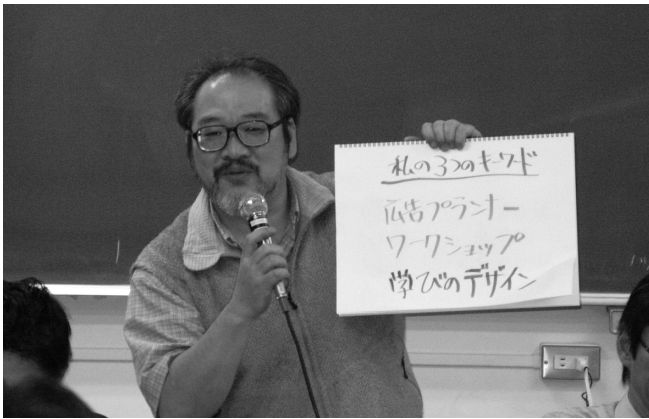 私の3つのキーワード
広告プランナー
ワークショップ
学びのデザイン